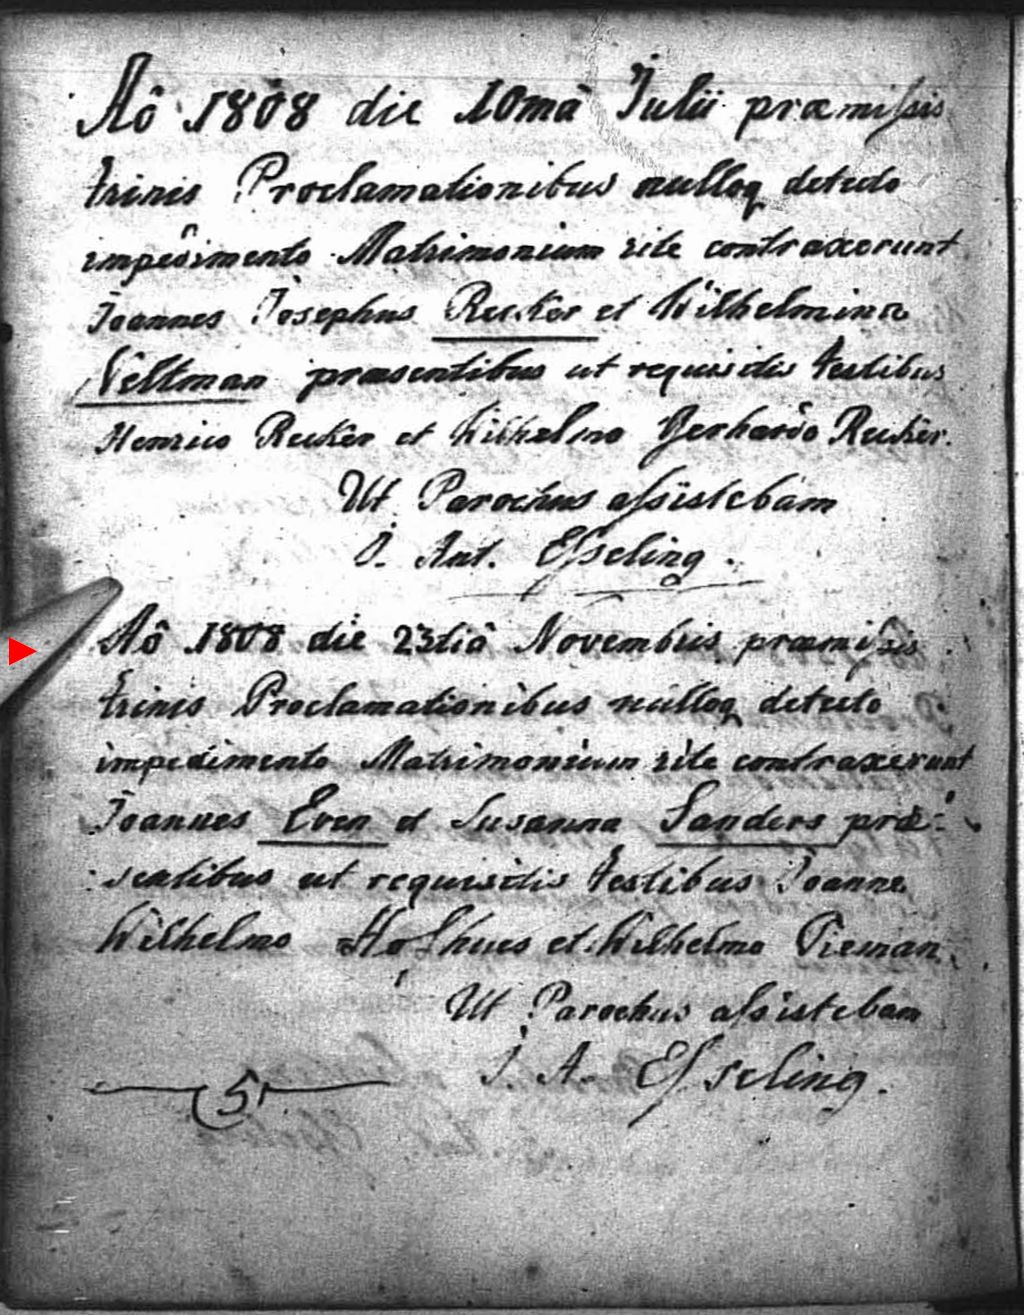 Aô 1808 die 10mâ Julii præmissis
trinis Proclamationibus nulloq detecto
impedimento Matrimonium rite contraxerunt
Joannes Josephus Recker et Wilhelmina
Veltman præsentibus ut requisitis testibus
Henrico Recker et Wilhelmo Gerhardo Recker.
Ut Parochus assistebam
J. Ant. Esseling.
Aô 1808 die 23tiâ Novembris præmissis
trinis Proclamationibus nulloq detecto
impedimento Matrimonium rite contraxerunt
Joannes Even et Susanna Sanders præ:
sentibus ut requisitis testibus Joanne
Wilhelmo et Wilhelmo Tieman.
Ut Parochus assistebam
J. A. Esseling.
5